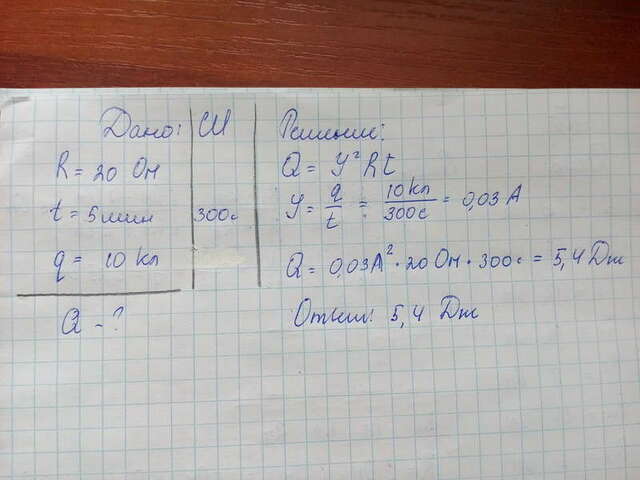 Дано:
R = 20 Ом
t = 5 мин
q = 10 кл
Q - ?
СИ
300с
Решение:
Q = I²Rt
I = q/t = 10 кл/300с = 0,03 А
Q = 0,03А² · 20 Ом · 300с = 5,4 Дж
Ответ: 5,4 Дж